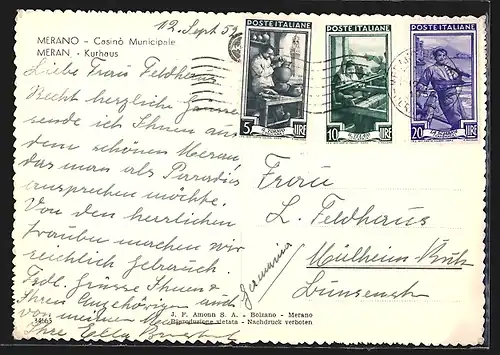 12. Sept. 5
MERANO - Casinò Municipale
MERAN - Kurhaus
POSTE ITALIANE
5 LIRE
POSTE ITALIANE
10 LIRE
POSTE ITALIANE
20 LIRE
Liebe Frau Feldhaus
Recht herzliche Grüsse
sende ich Ihnen aus
dem schönen Meran,
das man als Paradies
ansprechen möchte.
Von den herrlichen
Trauben machen wir
reichlich Gebrauch.
Frdl. Grüsse Ihnen &
Ihren Angehörigen auch
von meinem
Ihre
Frau
L. Feldhaus
Mülheim Ruhr
Germania
J. F. Amonn S. A. - Bolzano - Merano
Riproduzione vietata - Nachdruck verboten